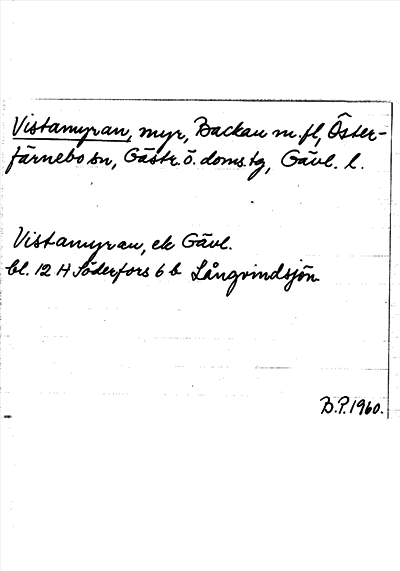 Vistamyran, myr, Backau m.fl, Öster-
färnebo sn, Gästr. ö. doms. tg, Gävl. l.
Vistamyran, ek Gävl.
bl. 12 H Söderfors 6 b Långvindsjön
B.P. 1960.